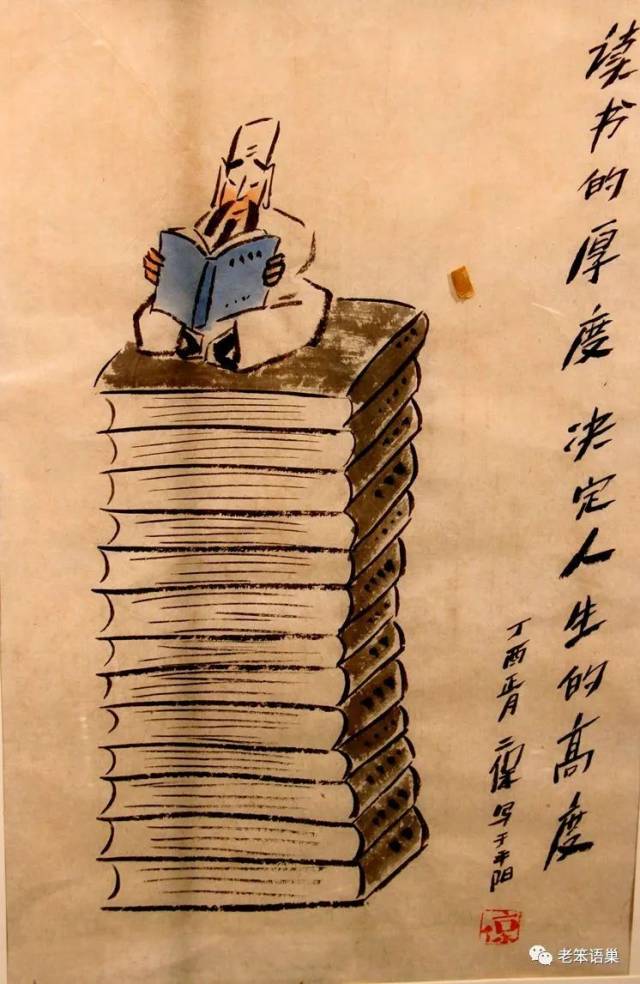 读书的厚度 决定人生的高度
丁酉正月 二保 写于平阳
二保
老笨语巢